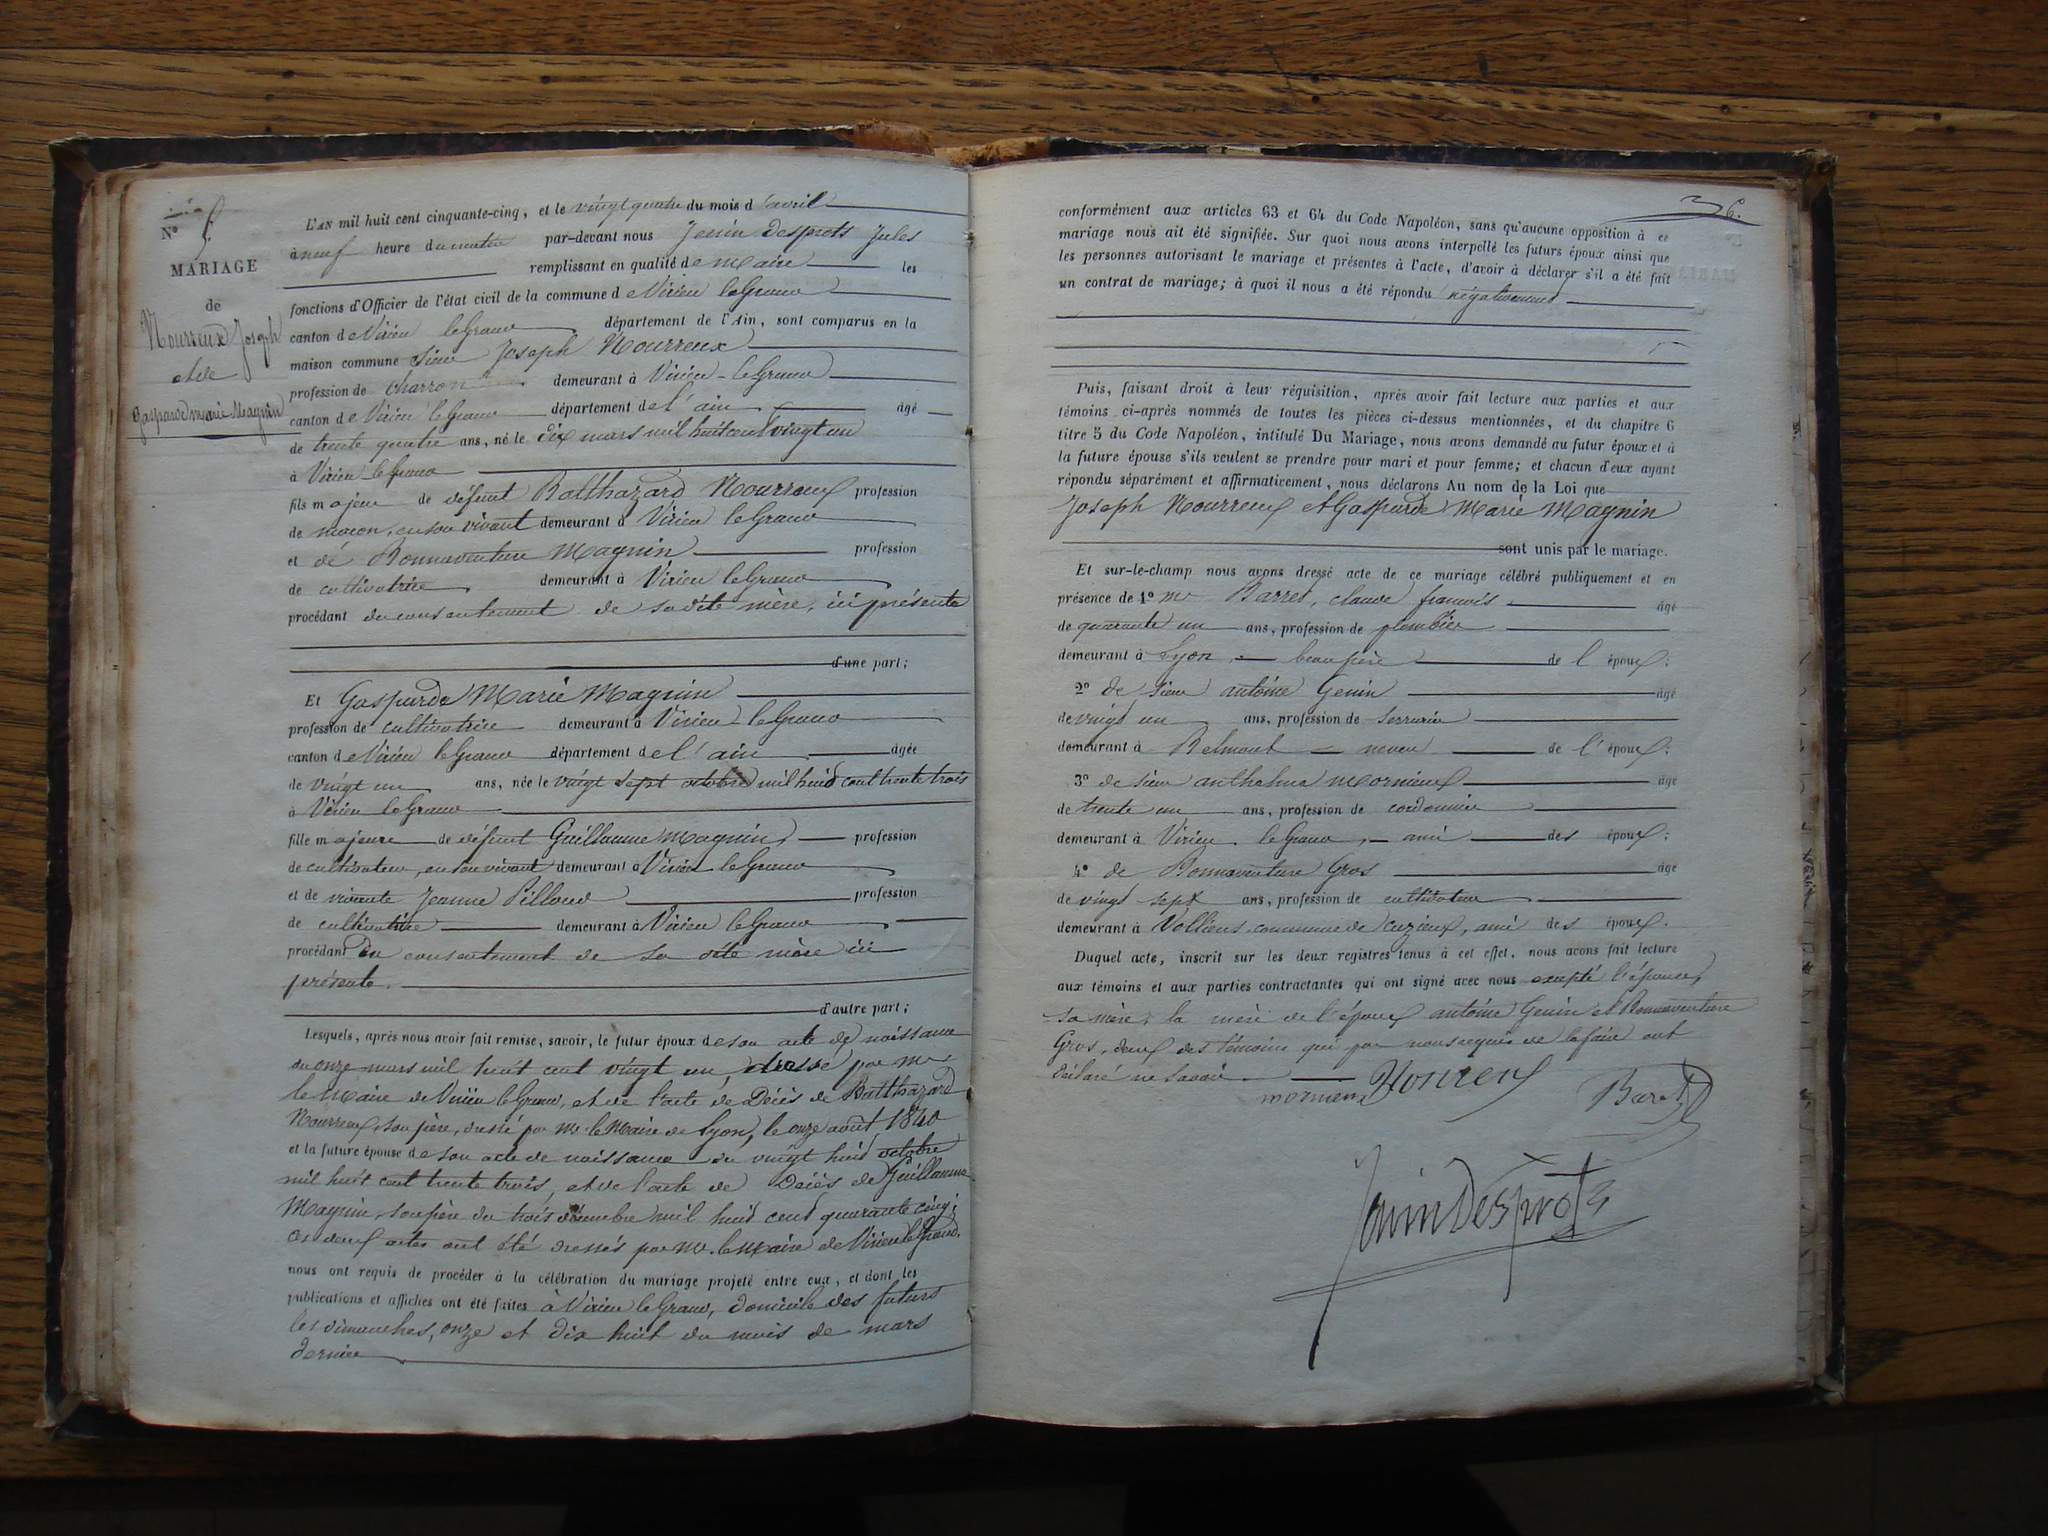 N° 5.
MARIAGE
de
Nourreux Joseph
et de
Gasparde marie Magnin
L'AN mil huit cent cinquante-cinq, et le vingt quatre du mois d'avril
à neuf heure du matin par-devant nous Jenin Desprots Jules
remplissant en qualité de maire les
fonctions d'Officier de l'état civil de la commune de Virieu le Grand
canton de Virieu le Grand département de l'Ain, sont comparus en la
maison commune sieur Joseph Nourreux
profession de charron demeurant à Virieu-le Grand
canton de Virieu le Grand département de l'ain âgé
de trente quatre ans, né le dix mars mil huit cent vingt un
à Virieu le Grand
fils majeur de défunt Balthazard Nourreux profession
de macon, en son vivant demeurant à Virieu le Grand
et de Bonnaventure Magnin profession
de cultivatrice demeurant à Virieu le Grand
procédant du consentement de sa dite mère, ici présente
d'une part;
Et Gasparde Marie Magnin
profession de cultivatrice demeurant à Virieu-le Grand
canton de Virieu le Grand département de l'ain âgée
de vingt un ans, née le vingt sept octobre mil huit cent trente trois
à Virieu le Grand
fille majeure de défunt Guillaume Magnin, profession
de cultivateur, en son vivant demeurant à Virieu le Grand
et de vivante Jeanne Pilloud profession
de cultivatrice demeurant à Virieu le Grand
procédant Du consentement de sa dite mère ici
présente.
d'autre part;
Lesquels, après nous avoir fait remise, savoir, le futur époux de son acte de naissance
du onze mars mil huit cent vingt un, dressé par mr
le Maire de Virieu le Grand, et de l'acte de Décès de Balthazard
Nourreux, son père, dressé par Mr le Maire de Lyon, le onze août 1840
et la future épouse de son acte de naissance du vingt huit octobre
mil huit cent trente trois, et de l'acte de Décès de Guillaume
Magnin, son père du trois décembre mil huit cent quarante cinq;
ces deux actes ont été dressés par Mr. le Maire de Virieu le Grand.
nous ont requis de procéder à la célébration du mariage projeté entre eux, et dont les
publications et affiches ont été faites à Virieu le Grand, domicile des futurs
les dimanches, onze et dix huit du mois de mars
dernier
36.
conformément aux articles 63 et 64 du Code Napoléon, sans qu'aucune opposition à ce
mariage nous ait été signifiée. Sur quoi nous avons interpellé les futurs époux ainsi que
les personnes autorisant le mariage et présentes à l'acte, d'avoir à déclarer s'il a été fait
un contrat de mariage; à quoi il nous a été répondu négativement
Puis, faisant droit à leur réquisition, après avoir fait lecture aux parties et aux
témoins ci-après nommés de toutes les pièces ci-dessus mentionnées, et du chapitre 6
titre 5 du Code Napoléon, intitulé Du Mariage, nous avons demandé au futur époux et à
la future épouse s'ils veulent se prendre pour mari et pour femme; et chacun d'eux ayant
répondu séparément et affirmativement, nous déclarons Au nom de la Loi que
Joseph Nourreux et Gasparde Marie Magnin
sont unis par le mariage.
Et sur-le-champ nous avons dressé acte de ce mariage célébré publiquement et en
présence de 1° mr Barret, claude françois âgé
de quarante un ans, profession de plombier
demeurant à Lyon, beau père de l'époux;
2° de sieur antoine Genin âgé
de vingt un ans, profession de serrurier
demeurant à Belmont neveu de l'époux;
3° de sieur anthelme mornieux âgé
de trente un ans, profession de cordonnier
demeurant à Virieu le Grand, ami des époux;
4° de Bonnaventure Gros âgé
de vingt sept ans, profession de cultivateur
demeurant à Volliens, commune de Cuzieux, ami des époux.
Duquel acte, inscrit sur les deux registres tenus à cet effet, nous avons fait lecture
aux témoins et aux parties contractantes qui ont signé avec nous excepté l'épouse,
sa mère, la mère de l'époux antoine Genin et Bonnaventure
Gros, deux des témoins qui par nous requis de le faire ont
déclaré ne savoir. Nourreux
mornieux Baret
Jenin Desprots